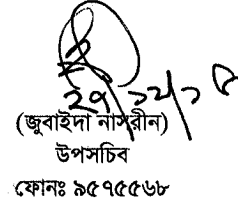 ২৭/১২/১৫
(জুবাইদা নাসরীন)
উপসচিব
ফোনঃ ৯৫৭৫৫৬৮